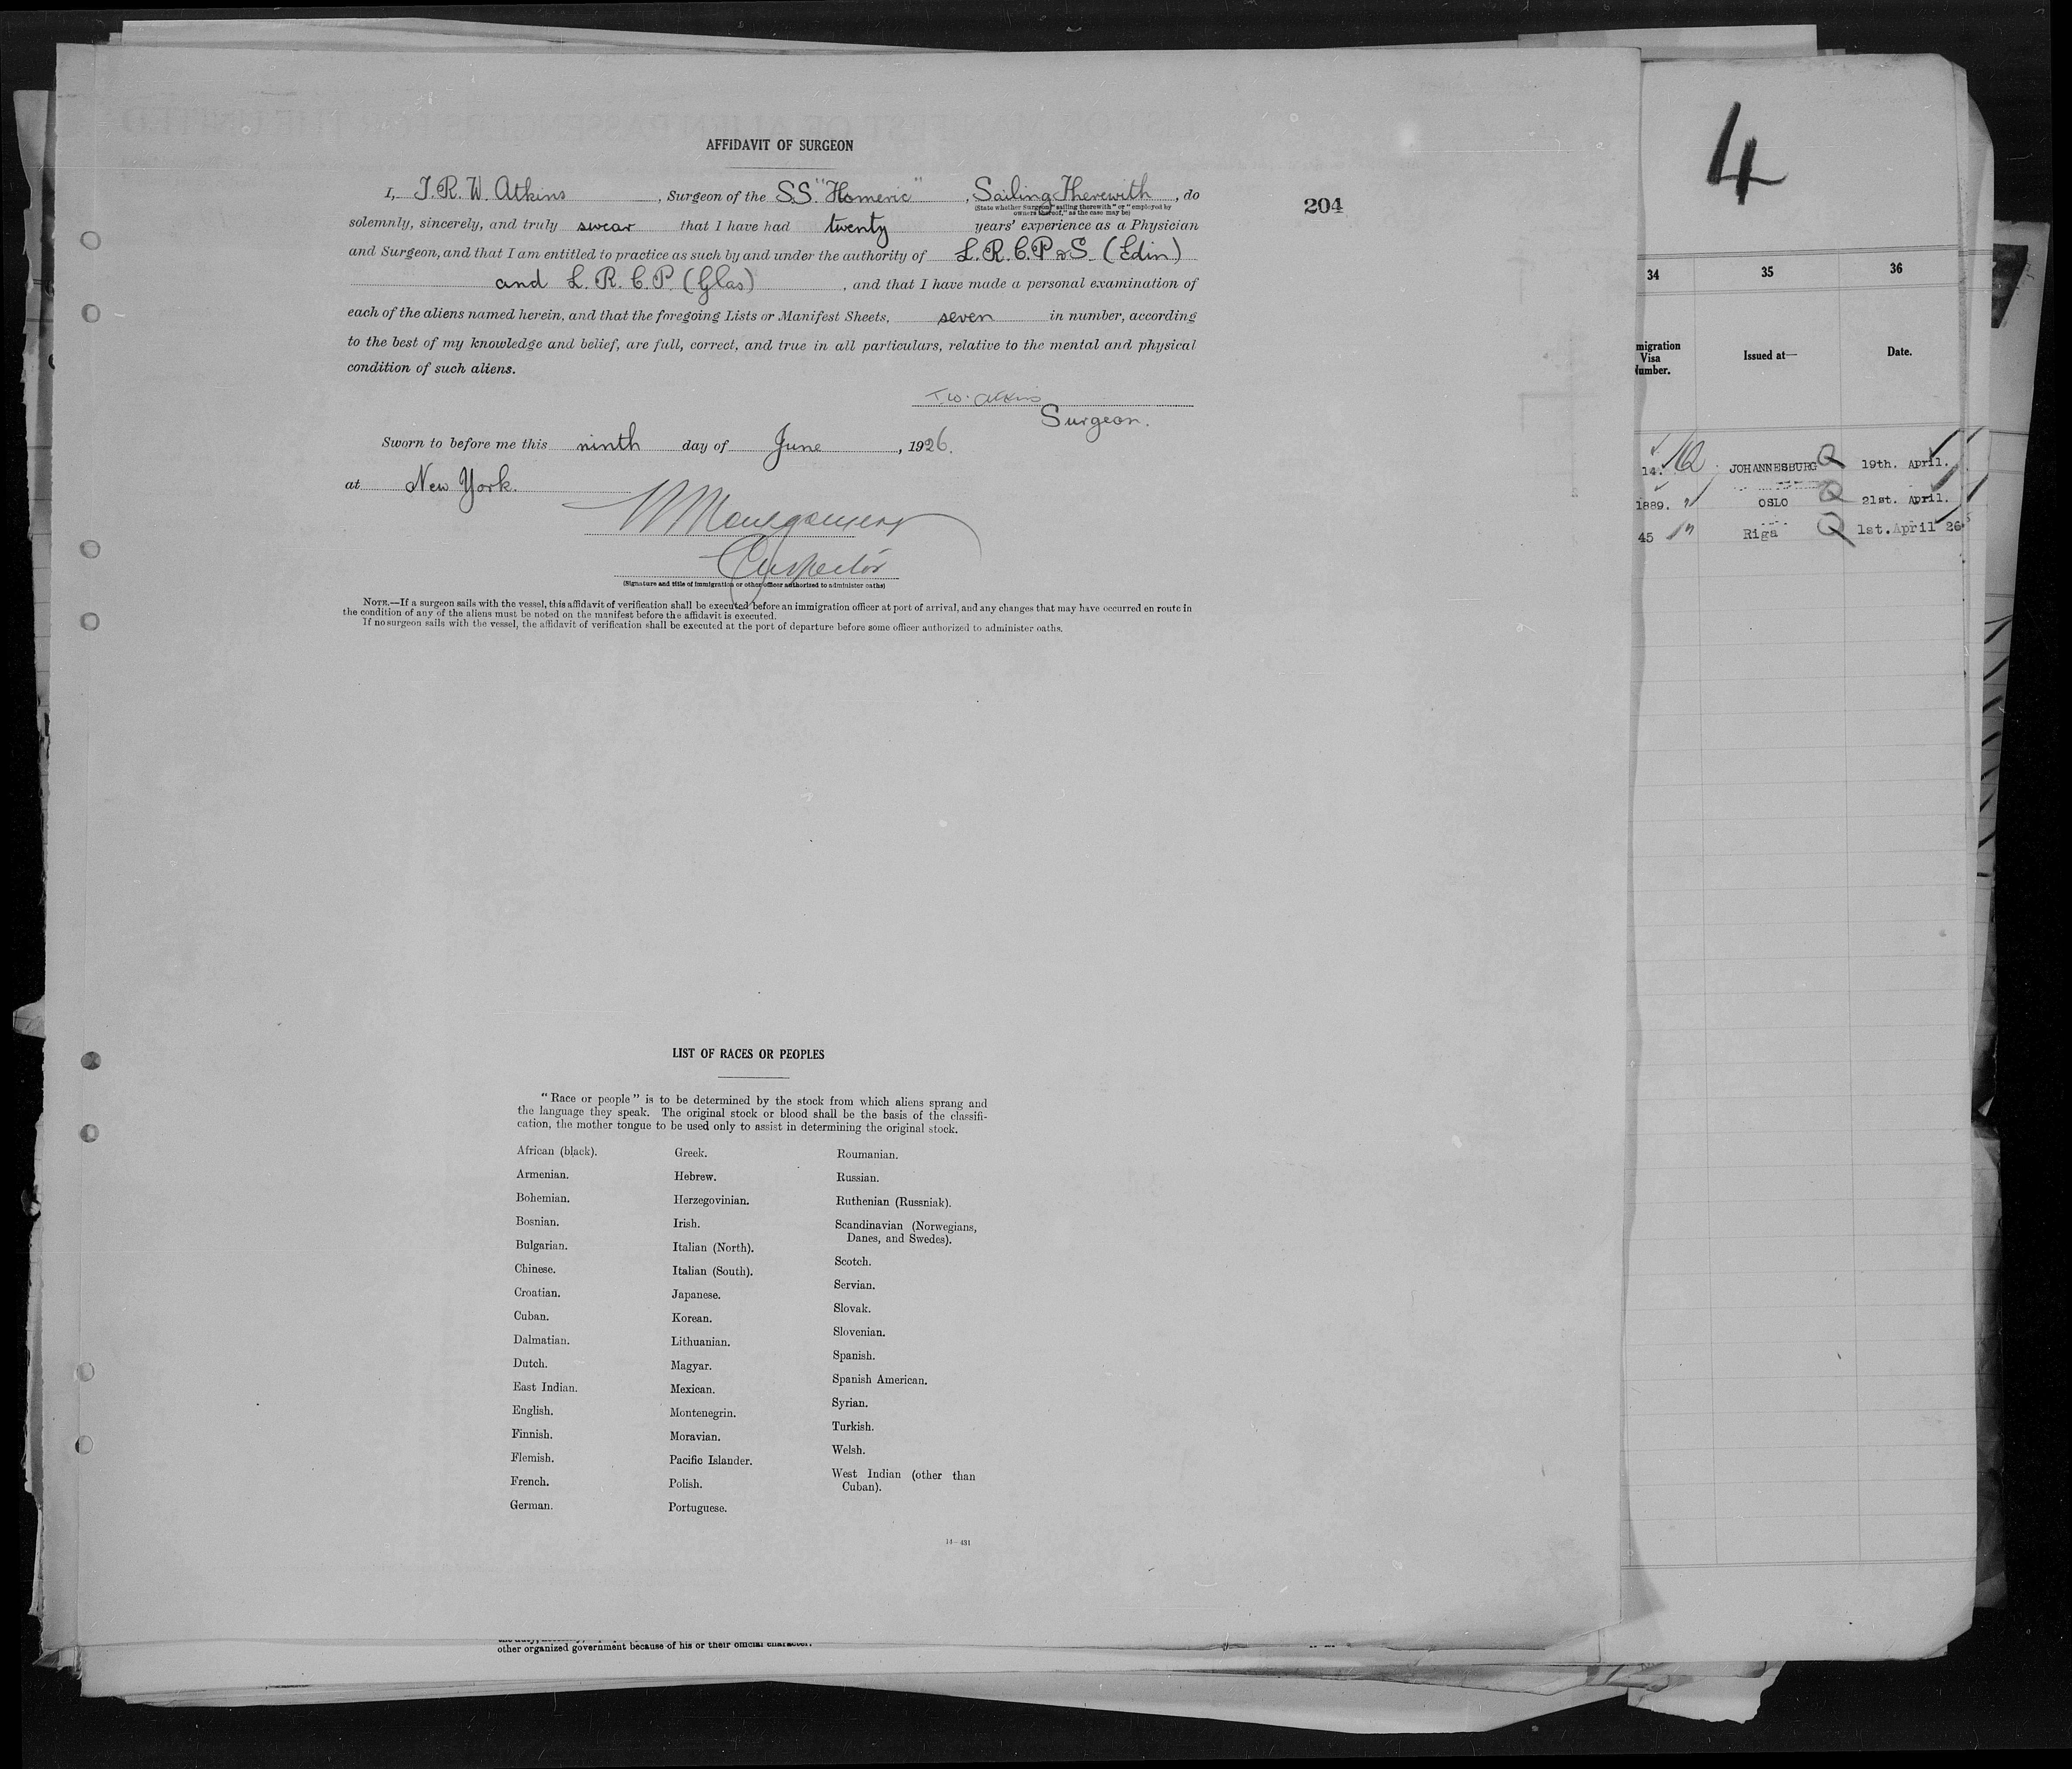 AFFIDAVIT OF SURGEON
I, J. R. W. Atkins, Surgeon of the SS. "Homeric", Sailing Therewith, do
(State whether Surgeon "sailing therewith" or "employed by
owners thereof," as the case may be)
solemnly, sincerely, and truly swear that I have had twenty years' experience as a Physician
and Surgeon, and that I am entitled to practice as such by and under the authority of L. R. C. P & S. (Edin)
and L. R. C. P. (Glas), and that I have made a personal examination of
each of the aliens named herein, and that the foregoing Lists or Manifest Sheets, seven in number, according
to the best of my knowledge and belief, are full, correct, and true in all particulars, relative to the mental and physical
condition of such aliens.
Atkins
Surgeon.
Sworn to before me this ninth day of June, 1926.
at New York.
Montgomery
Inspector
(Signature and title of immigration or other officer authorized to administer oaths)
NOTE.—If a surgeon sails with the vessel, this affidavit of verification shall be executed before an immigration officer at port of arrival, and any changes that may have occurred en route in
the condition of any of the aliens must be noted on the manifest before the affidavit is executed.
If no surgeon sails with the vessel, the affidavit of verification shall be executed at the port of departure before some officer authorized to administer oaths.
204
LIST OF RACES OR PEOPLES
"Race or people" is to be determined by the stock from which aliens sprang and
the language they speak. The original stock or blood shall be the basis of the classifi-
cation, the mother tongue to be used only to assist in determining the original stock.
African (black).
Armenian.
Bohemian.
Bosnian.
Bulgarian.
Chinese.
Croatian.
Cuban.
Dalmatian.
Dutch.
East Indian.
English.
Finnish.
Flemish.
French.
German.
Greek.
Hebrew.
Herzegovinian.
Irish.
Italian (North).
Italian (South).
Japanese.
Korean.
Lithuanian.
Magyar.
Mexican.
Montenegrin.
Moravian.
Pacific Islander.
Polish.
Portuguese.
Roumanian.
Russian.
Ruthenian (Russniak).
Scandinavian (Norwegians,
Danes, and Swedes).
Scotch.
Servian.
Slovak.
Slovenian.
Spanish.
Spanish American.
Syrian.
Turkish.
Welsh.
West Indian (other than
Cuban).
14—431
other organized government because of his or their official character.
4
34 35 36
migration
Visa
Number.
Issued at—
Date.
14. JOHANNESBURG 19th. April.
1889. OSLO 21st. April.
45 Riga 1st. April 26